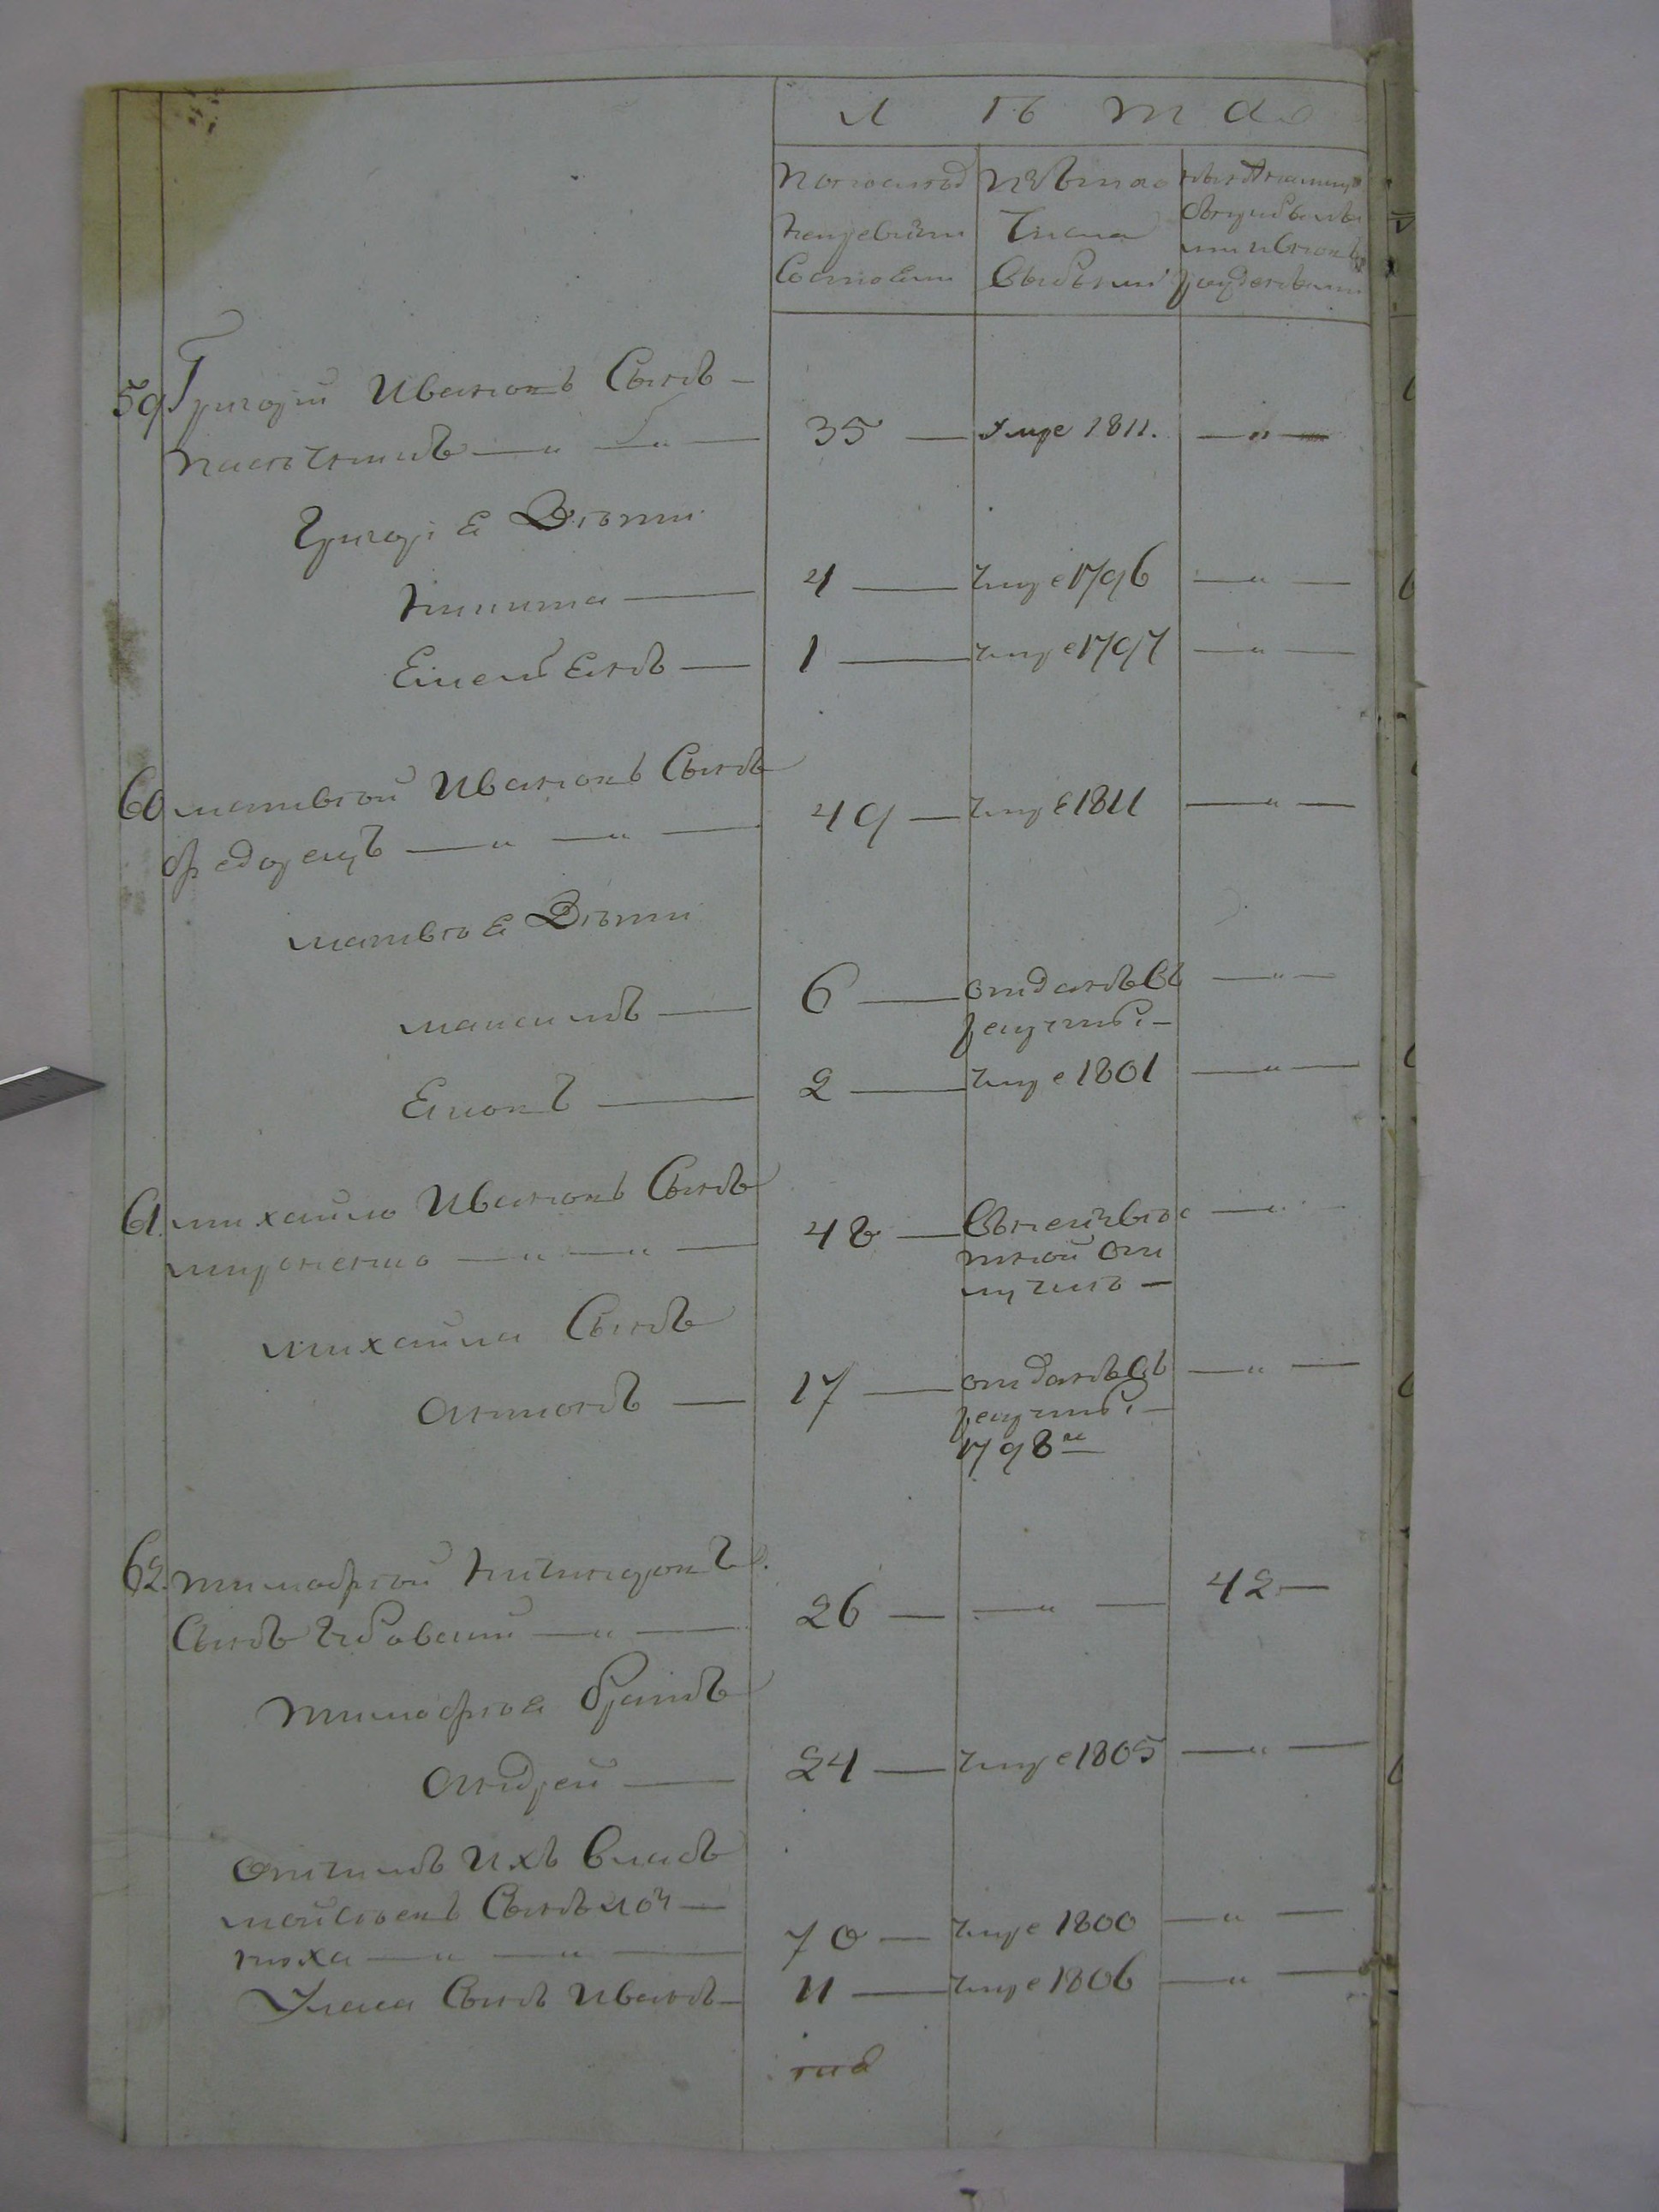 Л Ѣ т а
По последней
ревизіи
состояли
Изъ того
числа
выбыли
Григорій Ивановъ Сынъ —
59 35 — умре 1811. — „ —
Григорія Дѣти
Никита — 4 — умре 1796 — „ —
Емельянъ — 1 — умре 1797 — „ —
60 матвѣй Ивановъ Сынъ
Федорецъ — „ — „ — 49 — умре 1811 — „ —
матвѣя Дѣти
максимъ — 6 — отданъ въ — „ —
рекруты —
2 — умре 1801 — „ —
61. михайло Ивановъ Сынъ
мироненко — „ — „ — 48 — въ неизвѣс — „ —
тной от
лучкѣ —
михайла Сынъ
Антонъ — 17 — отданъ въ — „ —
рекруты —
1798го
62. тимофѣй Никифоровъ
Сынъ — „ — 26 — — „ — 42 —
тимофѣя братъ
Андрей — 24 — умре 1805 — „ —
отчимъ Ихъ Власъ
мойсѣевъ Сынъ
— „ — „ — 70 — умре 1800 — „ —
Уласа Сынъ Иванъ — 11 — умре 1806 — „ —